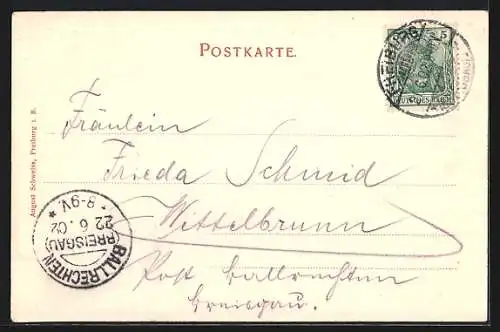 POSTKARTE.
5
FREIBURG
DEUTSCHES REICH
Fräulein
Frieda Schmid
Wittelbrunn
Post Ballrechten
Breisgau.
August Schweiss, Freiburg i. B.
BALLRECHTEN
(BREISGAU)
22 6. 02
* 8-9V. *